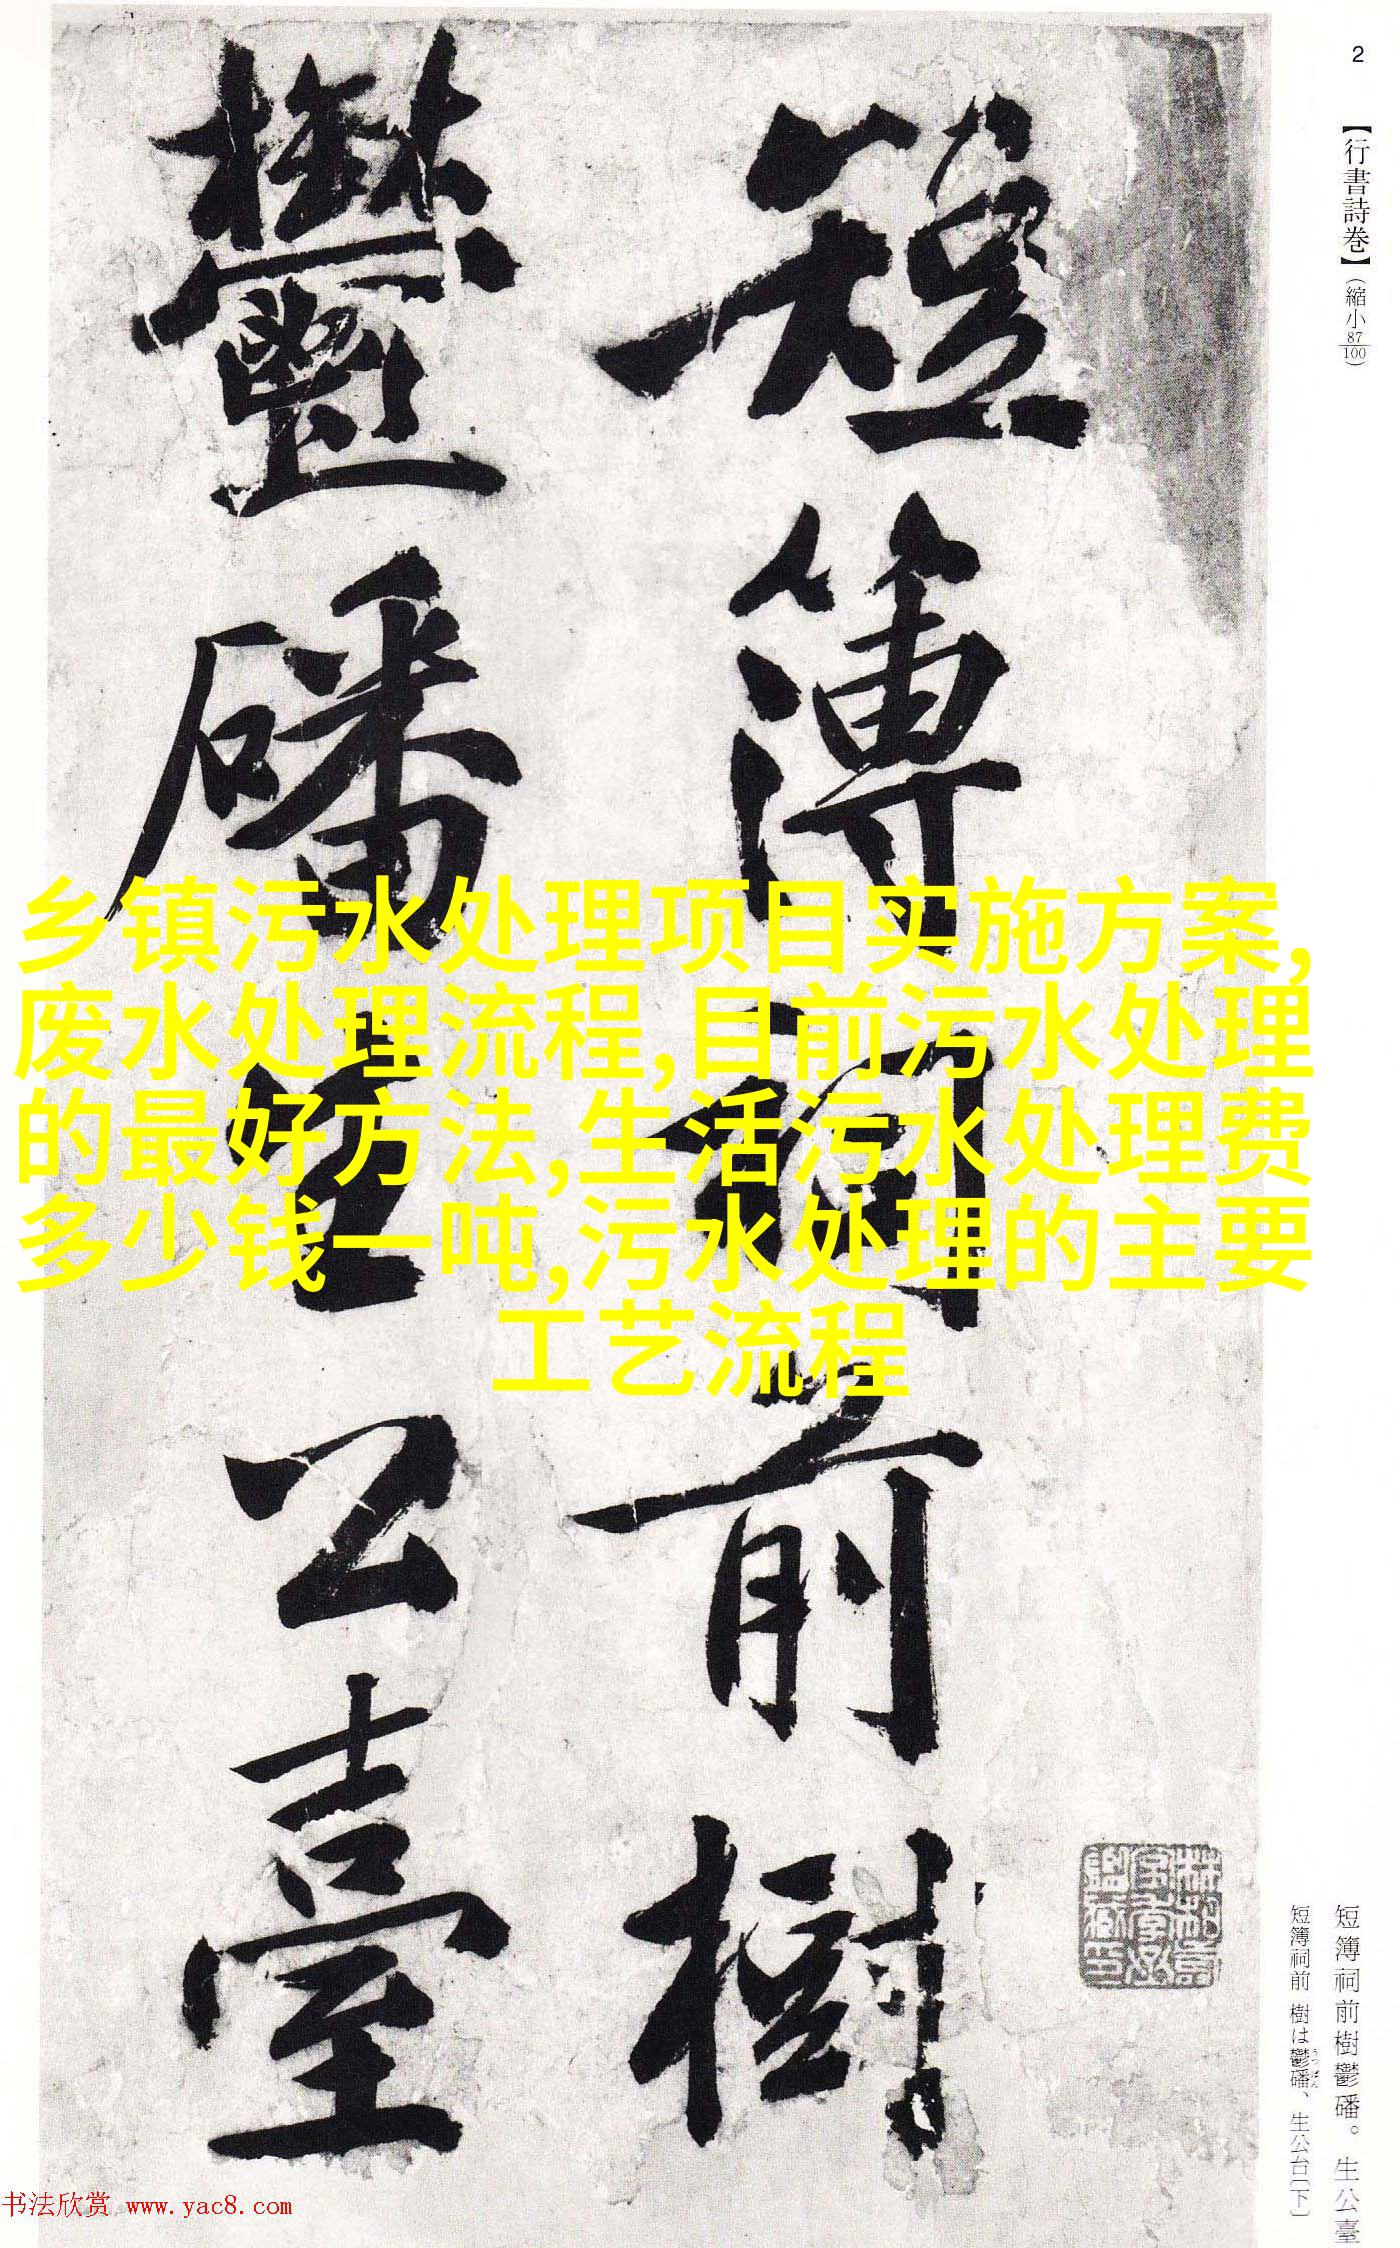 2
【行書詩巻】（縮小87/100）
短簿祠前樹
鬱磻生公臺
乡镇污水处理项目实施方案,
废水处理流程,目前污水处理
的最好方法,生活污水处理费
多少钱一吨,污水处理的主要
工艺流程
短簿祠前樹鬱磻。生公臺
短簿祠前 樹は鬱磻、生公台〔下〕
うつばん
书法欣赏 www.yac8.com